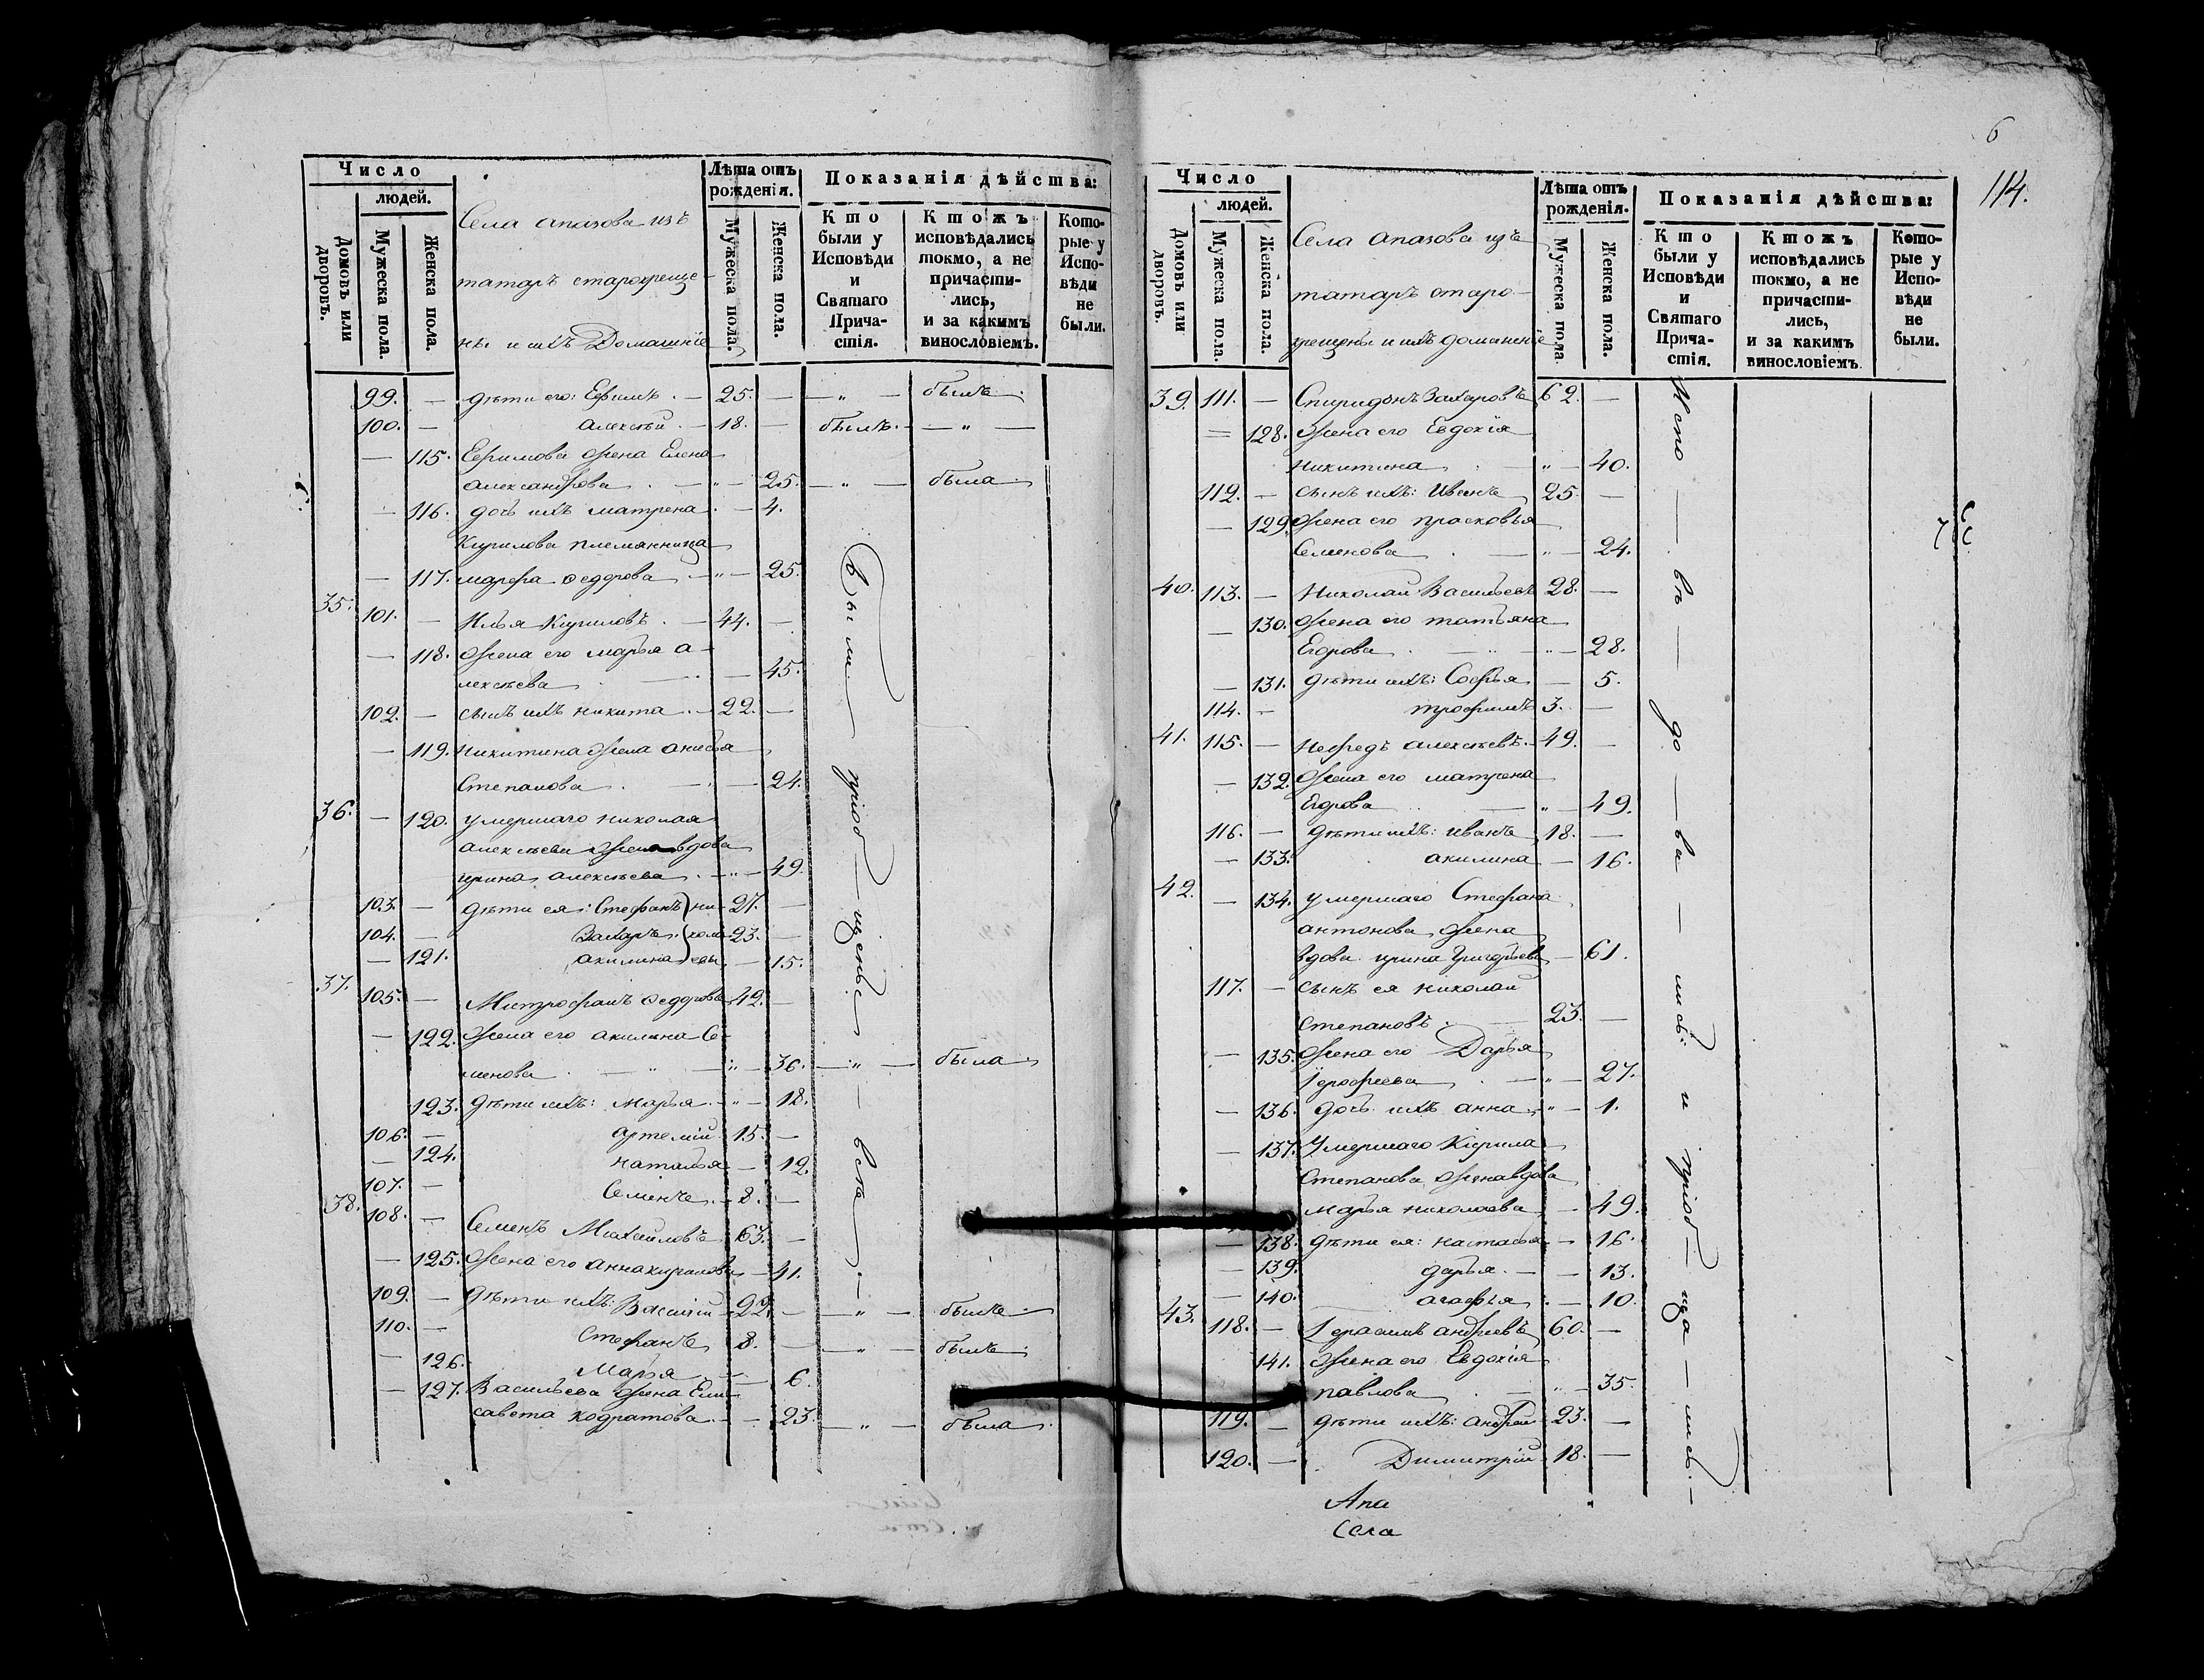 Число
людей.
Домовъ или дворовъ.
Мужеска пола.
Женска пола.
Села Апазова изъ
татаръ старокреще-
ны и ихъ Домашніе
Лѣта отъ рожденія.
Мужеска пола.
Женска пола.
Показанія дѣйства:
Кто были у Исповѣди и Святаго Причастія.
Ктожъ исповѣдались токмо, а не причастились, и за какимъ винословіемъ.
Которые у Исповѣди не были.
99. — дѣти его: Ефимъ. — 25. — — „ — былъ.
100. — Алексѣй. — 18. — былъ. — „ —
— 115. Ефимова жена Елена
Александрова. — „ — 25. — „ — была.
— 116. дочь ихъ матрена. — 4.
Кирилова племянница
— 117. марфа Федорова — „ — 25.
35. 101. — Илья Кириловъ. — 44. —
— 118. жена его марья а-
лексѣева — 45.
102. — сынъ ихъ никита. — 22. —
— 119. никитина жена анисья
Степанова. — 24.
36. — 120. умершаго николая
алексѣева жена вдова
ирина алексѣева. — „ — 49.
103. — дѣти ея: Стефанъ ни- 27. —
104. — Захаръ. кола- 23. —
— 121. акилина евы — 15.
37. 105. — Митрофанъ Федоровъ 42. —
— 122. жена его акилина Се-
менова. — „ — 36. — „ — была.
123. дѣти ихъ: Марья. — „ — 18.
106. — артемій 15. —
— 124. наталья — 12.
107. — Семенъ. — 8. —
38. 108. — Семенъ Михайловъ 63. —
— 125. жена его анна кирилова — 41.
109. — дѣти ихъ: Василій 22. — — „ — былъ.
110. — Стефанъ 8. — — „ — былъ.
— 126. Марья — 6.
— 127. Васильева жена Ели-
савета кодратова. — — 23. — „ — была.
Были пріоб — щень — вста.
6
114.
Число
людей.
Домовъ или дворовъ.
Мужеска пола.
Женска пола.
Села Апазова изъ
татаръ старо-
крещены и ихъ домашніе
Лѣта отъ рожденія.
Мужеска пола.
Женска пола.
Показанія дѣйства:
Кто были у Исповѣди и Святаго Причастія.
Ктожъ исповѣдались токмо, а не причастились, и за какимъ винословіемъ.
Которые у Исповѣди не были.
39. 111. — Спиридонъ Захаровъ 62. —
— 128. жена его Евдокія
никитина. — „ — 40.
112. — сынъ ихъ: Иванъ 25. —
— 129. жена его прасковья
Семенова. — „ — 24.
40. 113. — Николай Васильевъ 28. —
— 130. жена его татьяна
Егорова. — „ — 28.
— 131. дѣти ихъ: Софья — 5.
114. — трофимъ 3. —
41. 115. — Нефедъ алексѣевъ. 49. —
— 132. жена его матрена
Егорова — „ — 49.
116. — дѣти ихъ: иванъ 18. —
— 133. акилина — 16.
42. — 134. умершаго Стефана
антонова жена
вдова ирина Григорьева — 61.
117. — сынъ ея николай
степановъ. 23. —
— 135. жена его Дарья
Ерофеева. — „ — 27.
— 136. дочь ихъ анна „ — 1.
— 137. Умершаго Кирила
Степанова жена вдова
марья николаева — 49.
— 138. дѣти ея: настасья — 16.
— 139. дарья. — — 13.
— 140. агафья. — 10.
43. 118. — Герасимъ андреевъ 60. —
141. жена его Евдокія
павлова. — „ — 35.
119. — дѣти ихъ: андрей 23. —
120. — Димитрій 18. —
Испо — вѣ — до — ва — лись и пріоб — ща — лись. —
Апа
Села